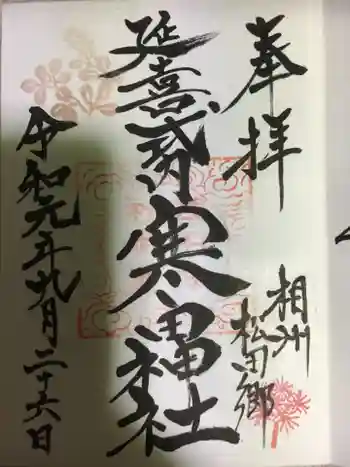 奉拝
相州
松田郷
延喜式内
寒田神社
令和元年九月二十六日